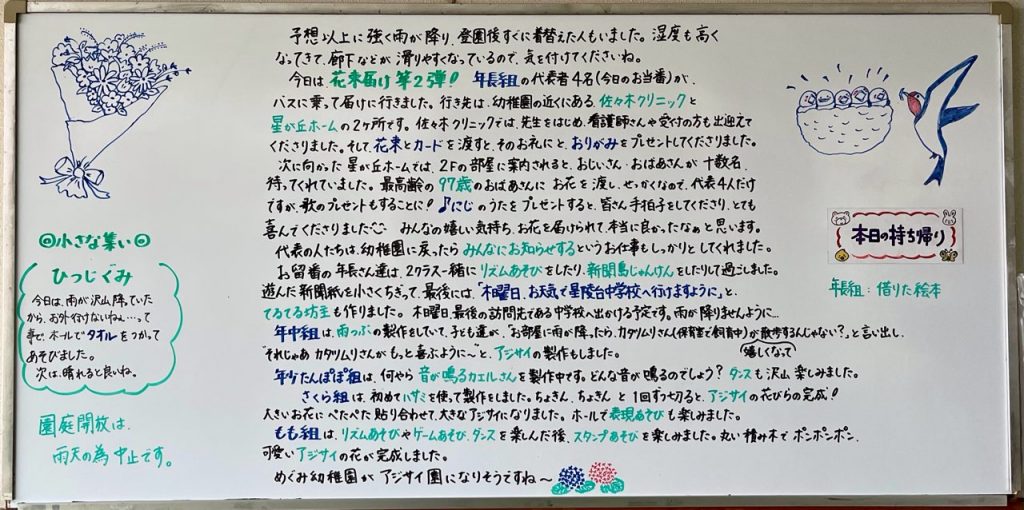 予想以上に強く雨が降り、登園後すぐに着替えた人もいました。湿度も高く
なってきて、廊下などが滑りやすくなっているので、気を付けてくださいね。
今日は花束届け第2弾！ 年長組の代表者4名(今日のお当番)が、
バスに乗って届けに行きました。行き先は、幼稚園の近くにある佐々木クリニックと
星が丘ホームの2ヶ所です。佐々木クリニックでは、先生をはじめ、看護師さんや受付の方も出迎えて
くださりました。そして、花束とカードを渡すと、そのお礼にと、おりがみをプレゼントしてくださりました。
次に向かった星が丘ホームでは、2Fの部屋に案内されると、おじいさん・おばあさんが十数名、
待ってくれていました。最高齢の97歳のおばあさんにお花を渡し、せっかくなので、代表4人だけ
ですが、歌のプレゼントもすることに！♪にじのうたをプレゼントすると、皆さん手拍子をしてくださり、とても
喜んでくださりました みんなの嬉しい気持ち、お花を届けられて、本当に良かったなぁと思います。
代表の人たちは、幼稚園に戻ったらみんなにお知らせするというお仕事もしっかりとしてくれました。
お留番の年長さん達は、2クラス一緒にリズムあそびをしたり、新聞島じゃんけんをしたりして過ごしました。
遊んだ新聞紙を小さくちぎって、最後には、「木曜日、お天気で星陵台中学校へ行けますように」と、
てるてる坊主も作りました。木曜日、最後の訪問先である中学校へ出かける予定です。雨が降りませんように…
年中組は、雨つぶの製作をしていて、子ども達が、「お部屋に雨が降ったら、カタツムリさん(保育室で飼育中)が散歩するんじゃない？」と言い出し、
嬉しくなって
"それじゃあカタツムリさんがもっと喜ぶように〜と、アジサイの製作もしました。
年少たんぽぽ組は、何やら音が鳴るカエルさんを製作中です。どんな音が鳴るのでしょう？ダンスも沢山楽しみました。
さくら組は、初めてハサミを使って製作をしました。ちょきん、ちょきんと1回ずつ切ると、アジサイの花びらの完成！
大きいお花にぺたぺた貼り合わせて、大きなアジサイになりました。ホールで表現あそびも楽しみました。
もも組は、リズムあそびやゲームあそび、ダンスを楽しんだ後、スタンプあそびを楽しみました。丸い積み木でポンポンポン、
可愛いアジサイの花が完成しました。
めぐみ幼稚園がアジサイ園になりそうですね〜
◎小さな集い◎
ひつじぐみ
今日は、雨が沢山降っていた
から、お外行けないねぇ…って
事で、ホールでタオルをつかって
あそびました。
次は、晴れると良いね。
園庭開放は、
雨天の為中止です。
本日の持ち帰り
年長組：借りた絵本